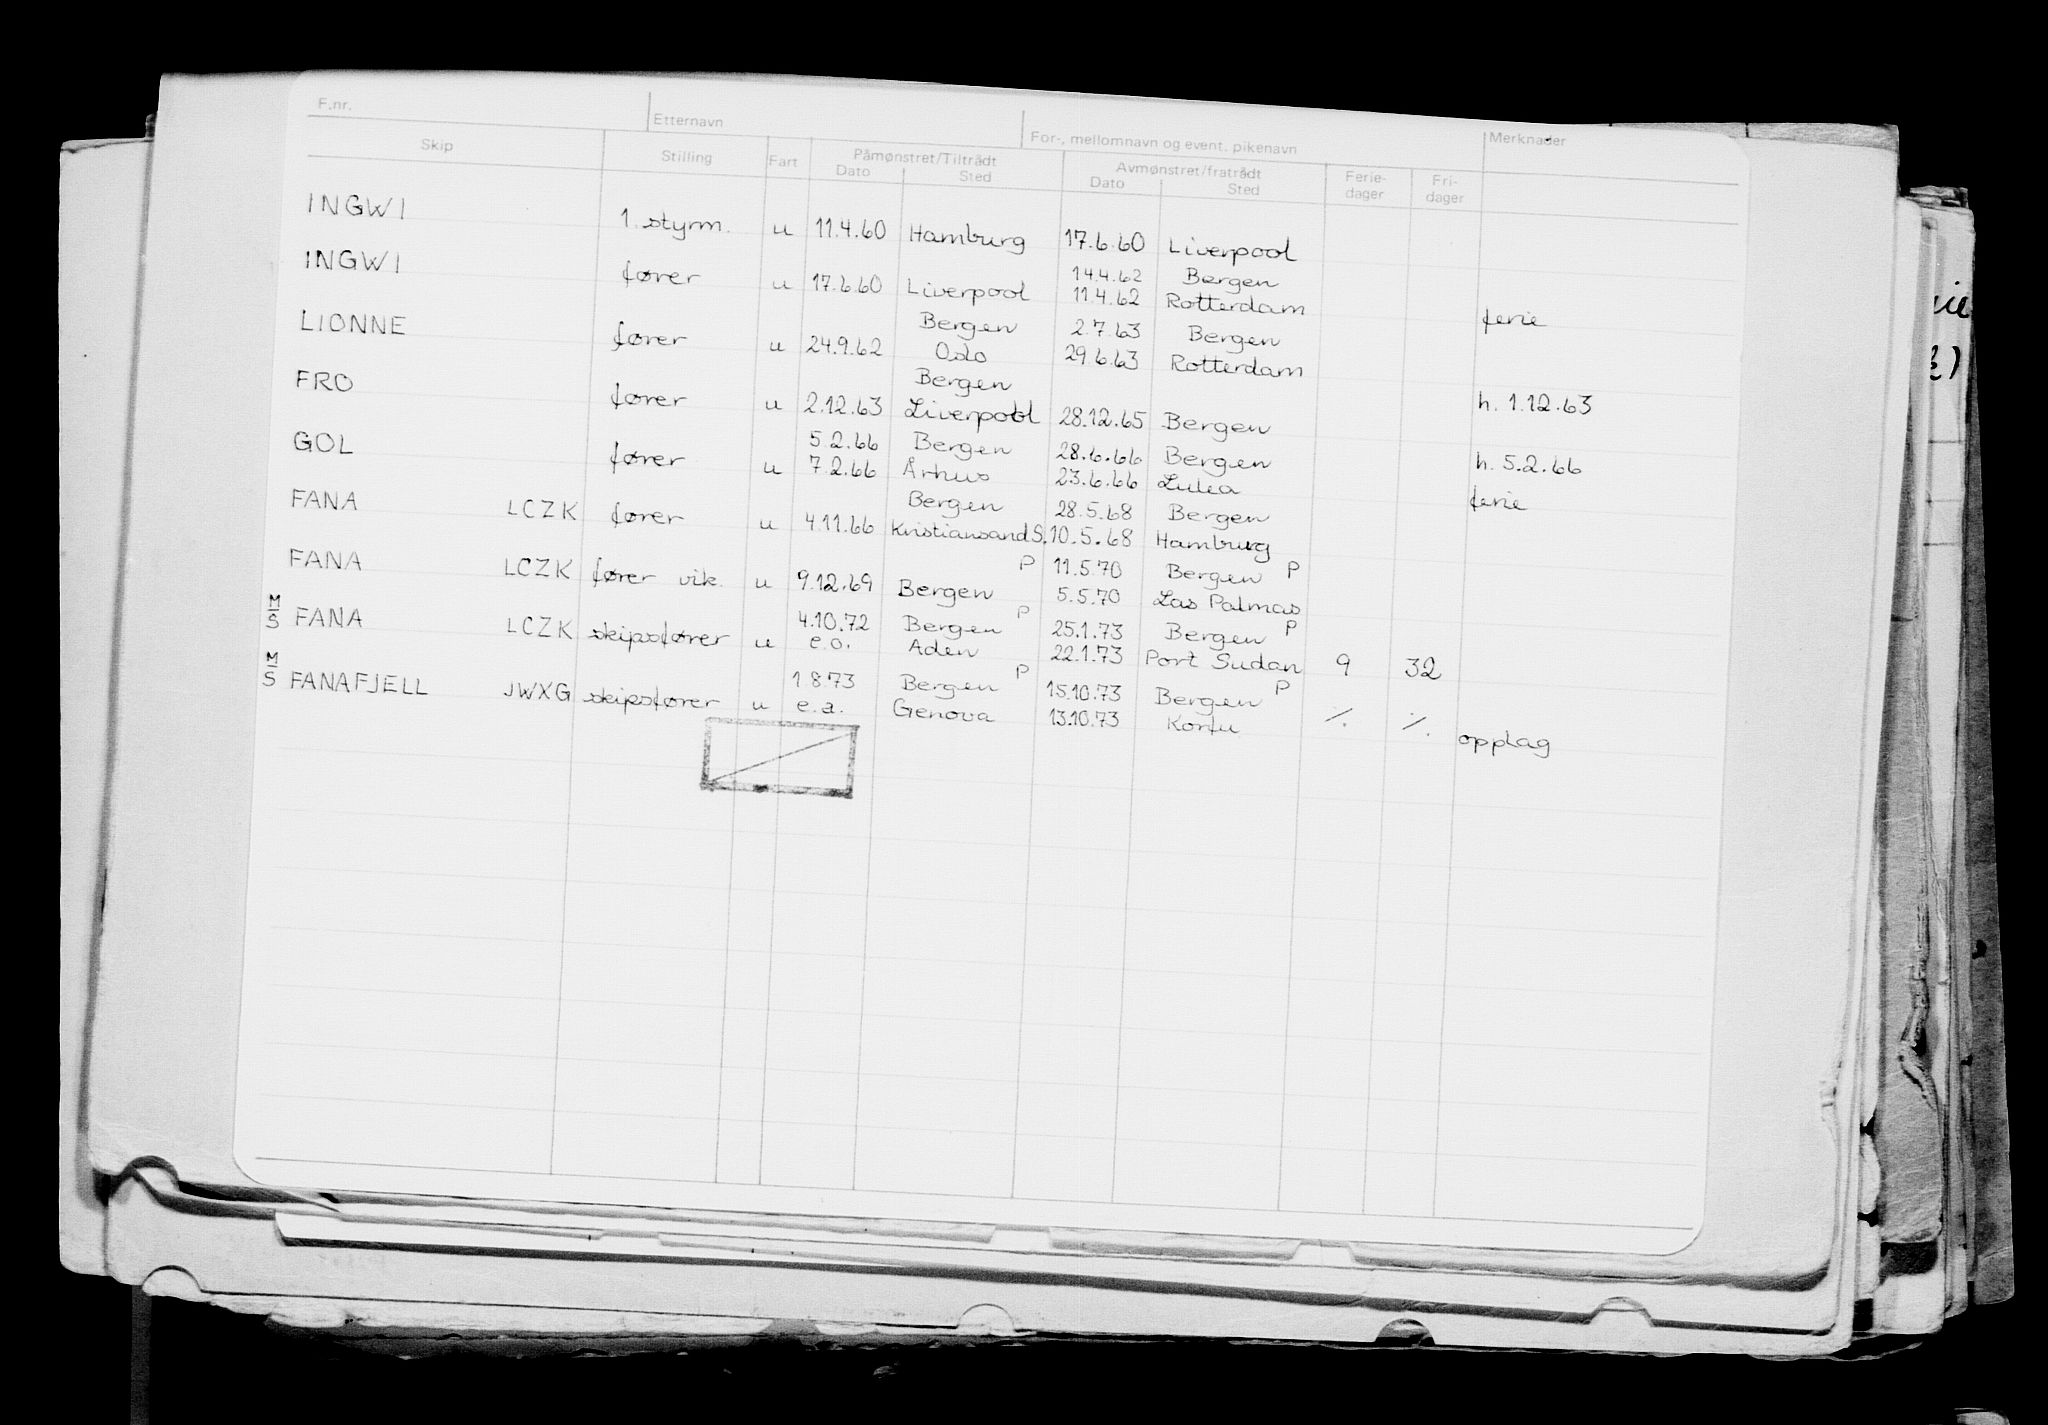 F.nr. Etternavn For-, mellomnavn og event. pikenavn Merknader
Skip Stilling Fart Påmønstret/Tiltrådt Avmønstret/fratrådt Ferie- Fri-
Dato Sted Dato Sted dager dager
INGWI 1. styrm. u 11.4.60 Hamburg 17.6.60 Liverpool
14.4.62 Bergen
INGWI fører u 17.6.60 Liverpool 11.4.62 Rotterdam ferie
Bergen 2.7.63 Bergen
LIONNE fører u 24.9.62 Oslo 29.6.63 Rotterdam
Bergen
FRO fører u 2.12.63 Liverpool 28.12.65 Bergen h. 1.12.63
5.2.66 Bergen 28.6.66 Bergen h. 5.2.66
GOL fører u 7.2.66 Århus 23.6.66 Lulea ferie
Bergen 28.5.68 Bergen
FANA LCZK fører u 4.11.66 Kristiansand S. 10.5.68 Hamburg
P 11.5.70 Bergen P
FANA LCZK fører vik. u 9.12.69 Bergen 5.5.70 Las Palmas
4.10.72 Bergen P 25.1.73 Bergen P
M/S FANA LCZK skipsfører u e.o. Aden 22.1.73 Port Sudan 9 32
1.8.73 Bergen P 15.10.73 Bergen P
M/S FANAFJELL JWXG skipsfører u e.a. Genova 13.10.73 Korfu ./. ./. opplag